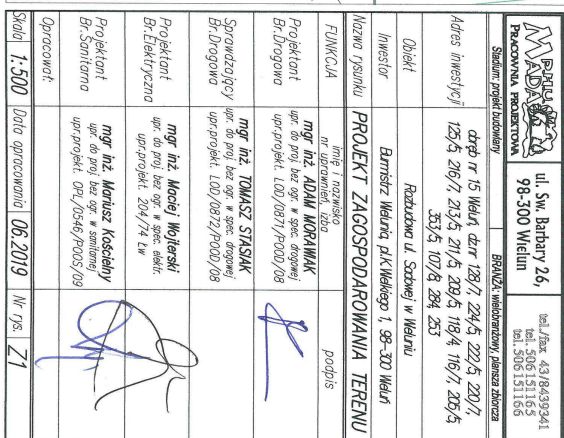 PHU
MADA
PRACOWNIA PROJEKTOWA
ul. Św. Barbary 26,
98-300 Wieluń
tel./fax 43/8439341
tel. 506151165
tel. 506151166
Stadium: projekt budowlany
BRANŻA: wielobranżowy, plansza zbiorcza
Adres inwestycji
obręb nr 15 Wieluń, dz.nr 128/7, 224/5, 222/5, 220/7,
125/5, 216/7, 213/5, 211/5, 209/5, 118/4, 116/7, 205/5,
353/5, 107/8, 284, 253
Obiekt
Rozbudowa ul. Sadowej w Wieluniu
Inwestor
Burmistrz Wielunia, pl.K.Wielkiego 1, 98-300 Wieluń
Nazwa rysunku
PROJEKT ZAGOSPODAROWANIA TERENU
FUNKCJA
imię i nazwisko
nr uprawnień, izba
podpis
Projektant
Br.Drogowa
mgr inż. ADAM MORAWIAK
upr. do proj. bez ogr. w spec. drogowej
upr.projekt. LOD/0871/POOD/08
Sprawdzający
Br.Drogowa
mgr inż. TOMASZ STASIAK
upr. do proj. bez ogr. w spec. drogowej
upr.projekt. LOD/0872/POOD/08
Projektant
Br.Elektryczna
mgr inż. Maciej Wojterski
upr. do proj. bez ogr. w spec. elektr.
upr.projekt. 204/74 Łw
Projektant
Br.Sanitarna
mgr inż. Mariusz Kościelny
upr. do proj. bez ogr. w sanitarnej
upr.projekt. OPL/0546/POOS/09
Opracował:
Skala 1:500 Data opracowania 06.2019 Nr rys. Z1